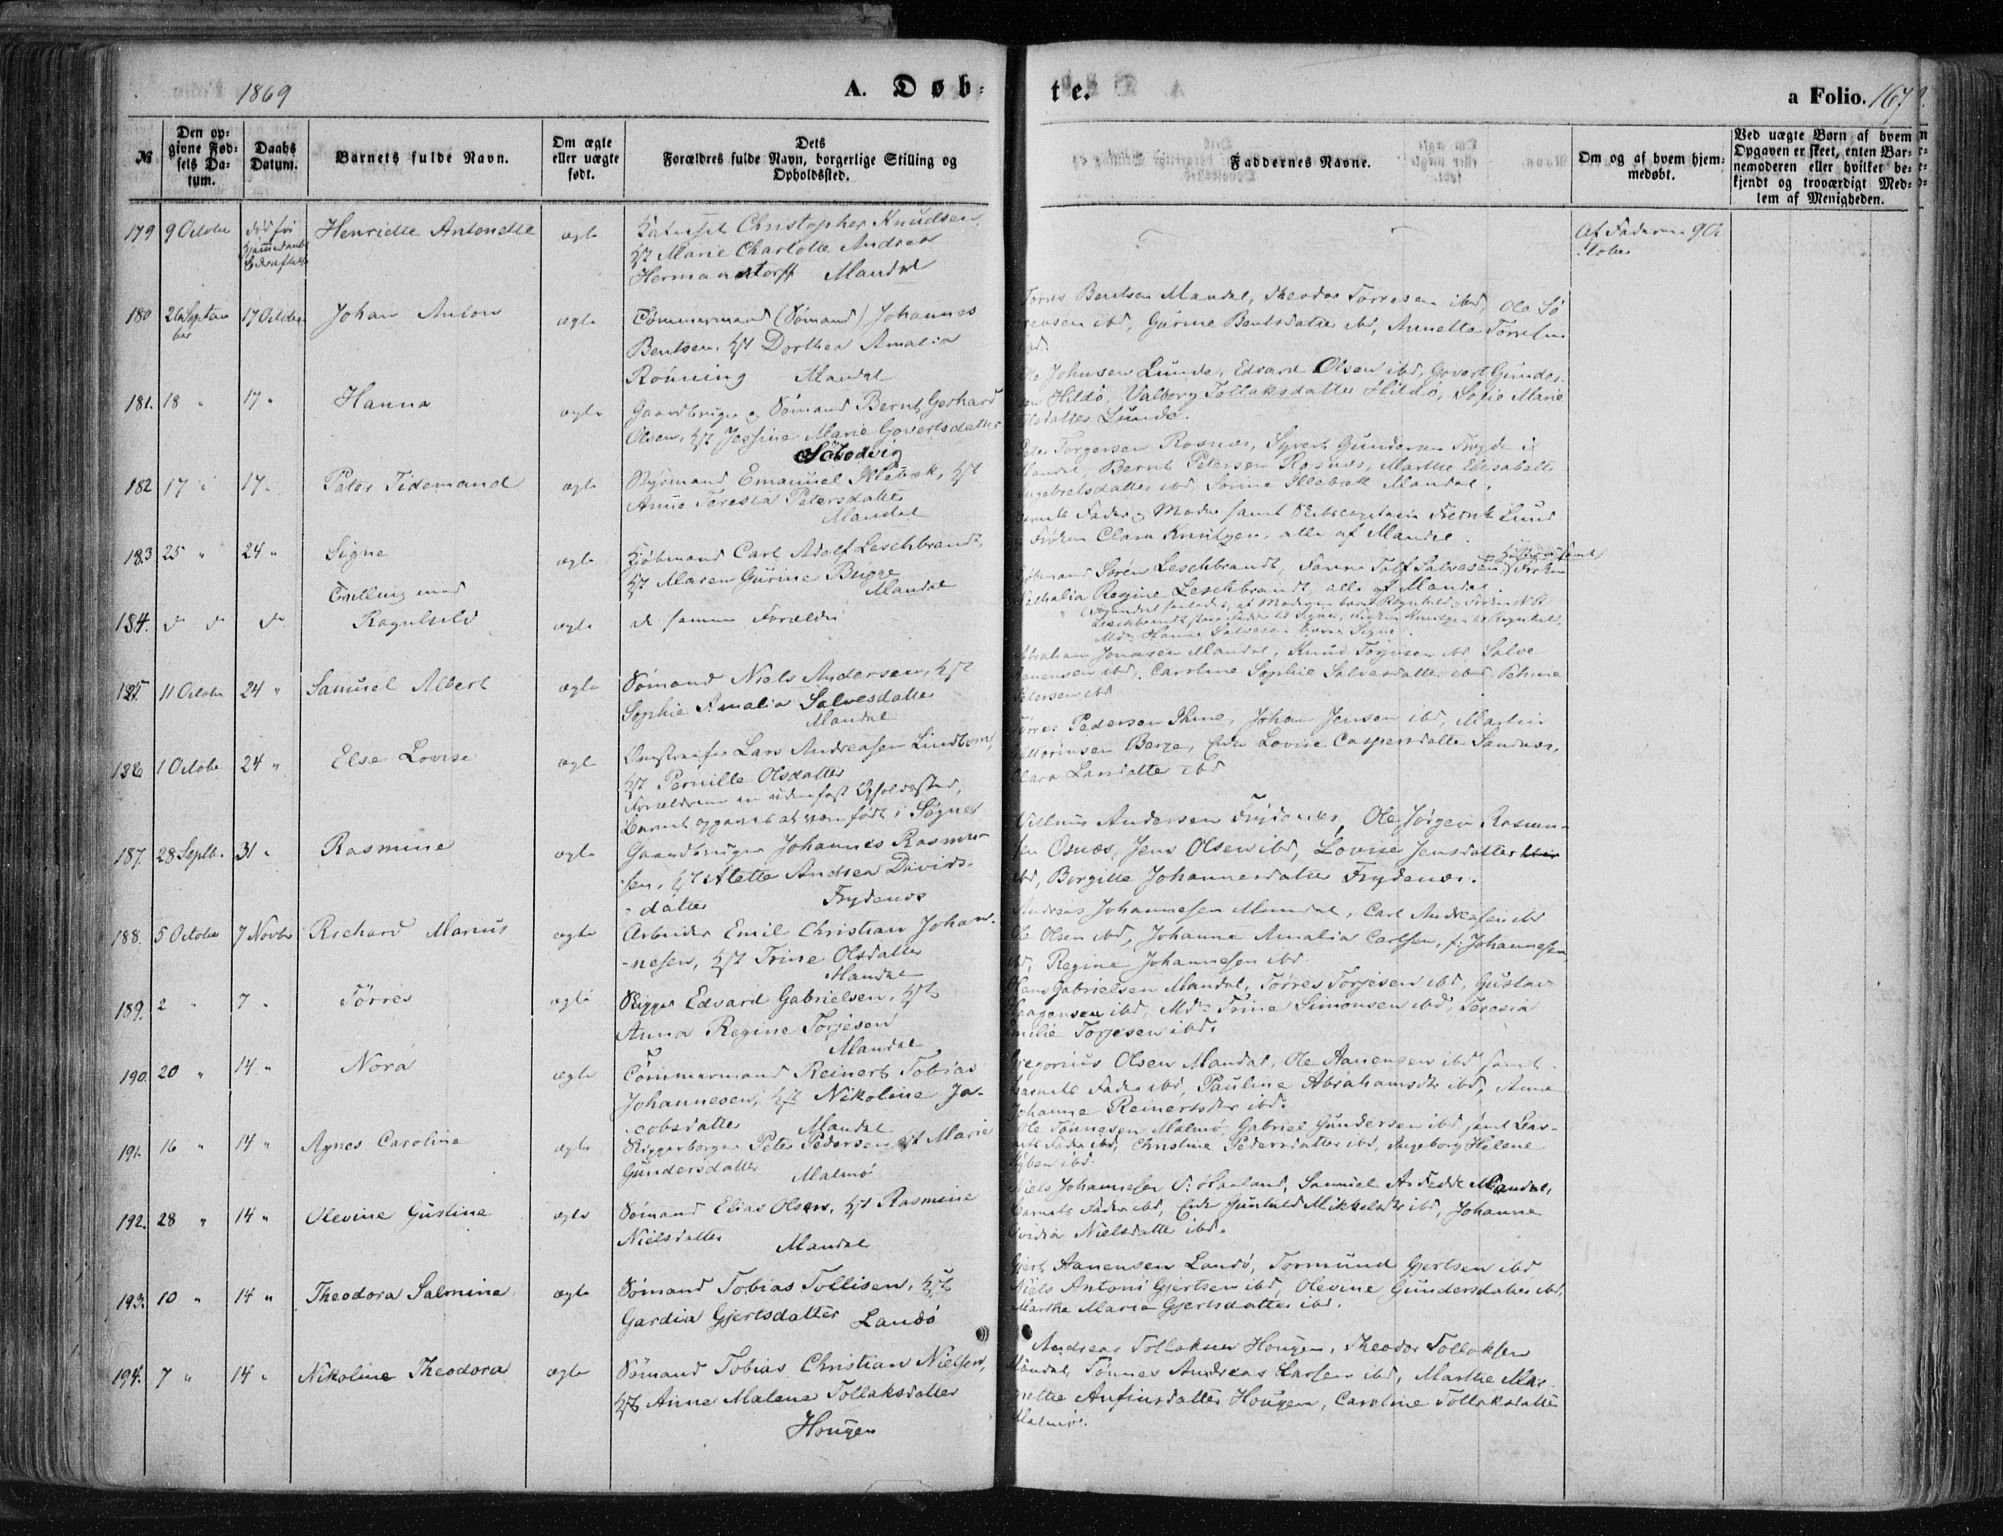 1869
A. Døb-
te.
a Folio. 167
№
Den op-
givne Fød-
sels Da-
tum.
Daabs
Datum.
Barnets fulde Navn.
Om ægte
eller uægte
født.
Dets
Forældres fulde Navn, borgerlige Stilling og
Opholdssted.
Faddernes Navne.
Om og af hvem hjem-
medøbt.
Ved uægte Børn af hvem
Opgaven er skeet, enten Bar-
nemoderen eller hvilket be-
kjendt og troværdigt Med-
lem af Menigheden.
179 9 October Henriette Antonette ægte Christopher Knudsen,
Marie Charlotte Andrea
Hermansdorff Mandal
Af Faderen 9 Oc
tober
180 26 Septem
ber 17 October Johan Anton ægte Tømmermand (Sømand) Johannes
Bentsen, Dorthea Amalia
Rönning Mandal
Bentsen Mandal, Theodor Torresen ibd, Ole Sö
rensen ibd, Gurine Bentsdatter ibd, Annette
181. 18 " 17 " Hanna ægte Gaardbruger og Sømand Bernt Gerhard
Olsen, Jessine Marie Govertsdatter
Johnsen Lunde, Edvard Olsen ibd, Govert Gunder-
Hildö, Valborg Tollaksdatter Hildö, Sofie Marie
Lunde.
182 17 " 17 " Peter Tidemand ægte Styrmand Emanuel Illebæk,
Anne Teresia Petersdatter
Mandal
Torgersen Rosnæs, Syvert Gundersen
Bernt Petersen Rosnæs, Marthe Elisabeth
ibd Sorine Illebæk Mandal.
183 25 " 24 " Signe ægte Kjøbmand Carl Adolf Leschbrandt,
Maren Gurine Bugge
Mandal
Fader og Moder samt Fredrik Lund
Frøken Clara Knutzen, alle af Mandal.
Tvilling med
184. do do do Ragnhild ægte de samme Forældre
Sören Leschbrandt,
Regine Leschbrandt, alle af Mandal.
185 11 October 24 " Samuel Albert ægte Sømand Niels Andersen,
Sophie Amalia Salvesdatter
Mandal
Jonassen Mandal, Knud Torjusen ibd Salve
ibd, Caroline Sophie Salvesdatter ibd, Petrine
Petersen ibd
186 1 October 24 " Else Lovise ægte Lars Andreasen Lindbom,
Pernille Olsdatter
Forældrene
Barnet opgavet at være født i Søgne
Pedersen Ihme, Johan Jensen ibd, Martin
Berge, Lovise Caspersdatter Sandnæs,
Larsdatter ibd
187. 28 Septb. 31 " Rasmine ægte Gaardbruger Johannes Rasmu-
sen, Alette Andrea Davids-
datter Frydenæs
Andersen Frydenæs, Ole Jörgen Rasmu-
sen Osnæs, Jens Olsen ibd, Lovise Jensdatter
ibd, Borgitte Johannesdatter Frydenæs.
188. 5 October 7 Novbr Richard Marius ægte Arbeider Emil Christian Johan-
nesen, Trine Olsdatter
Mandal
Andreas Johannesen Mandal, Carl Andreasen ibd
Ole Olsen ibd, Johanne Amalia Carlsen, f: Johannesen
ibd, Regine Johannesen ibd.
189. 2 " 7 " Törres ægte Rigger Edvard Gabrielsen,
Anna Regine Torjesen
Mandal
Hans Gabrielsen Mandal, Törres Torjesen ibd, Gustav
Haagensen ibd, Trine Simonsen ibd, Teresia
Emilie Torjesen ibd.
190. 20 " 14 " Nora ægte Tömmermand Reinert Tobias
Johannesen, Nikoline Ja-
cobsdatter Mandal
Gregorius Olsen Mandal, Ole Aanensen ibd samt
Barnets Fader ibd, Pauline Abrahamsdtr ibd, Anne
Johanne Reinertsdtr ibd.
191. 16 " 14 " Agnes Caroline ægte Peter Pedersen, Marie
Gundersdatter Malmö
Ole Tönnesen Malmö, Gabriel Gundersen ibd samt Bar-
nets Fader ibd, Christine Pedersdatter ibd, Ingeborg Helene
ibd.
192. 28 " 14 " Olevine Gustine ægte Sømand Elias Olsen, Rasmine
Nielsdatter Mandal
Niels Johannesen Haaland, Samuel Mandal,
Barnets Fader ibd, Gunhild Mikkelsdtr ibd, Johanne
Nielsdatter ibd.
193. 10 " 14 " Theodora Salmine ægte Sømand Tobias Tollisen,
Gardia Gjertsdatter Landö
Gjert Aanensen Landö, Tormund Gjertsen ibd
Niels Antoni Gjertsen ibd, Olevine Gundersdatter ibd,
Marthe Marie Gjertsdatter ibd.
194. 7 " 14 " Nikoline Theodora ægte Sømand Tobias Christian Nielsen,
Anne Malene Tollaksdatter
Hougen
Andreas Tollaksen Hougen, Theodor Tollaksen
Mandal, Tönnes Andreas Larsen ibd, Marthe Mar-
grethe Anfinsdatter Hougen, Caroline Tollaksdatter
Malmö.